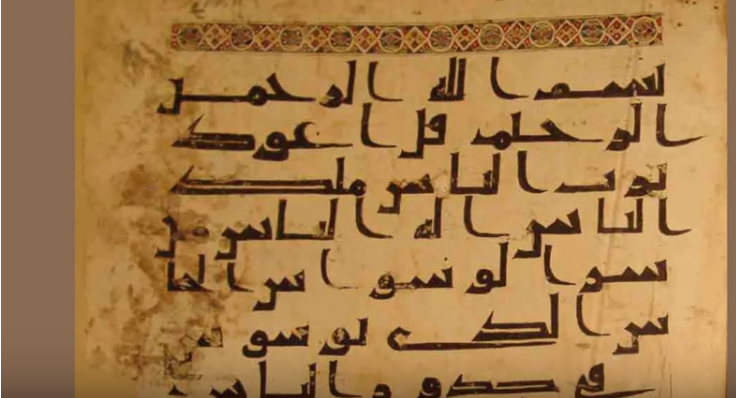 بسم الله الرحمن
الرحيم قل اعوذ
برب الناس ملك
الناس اله الناس من
شر الوسواس الخنا
س الذي يوسوس
في صدور الناس